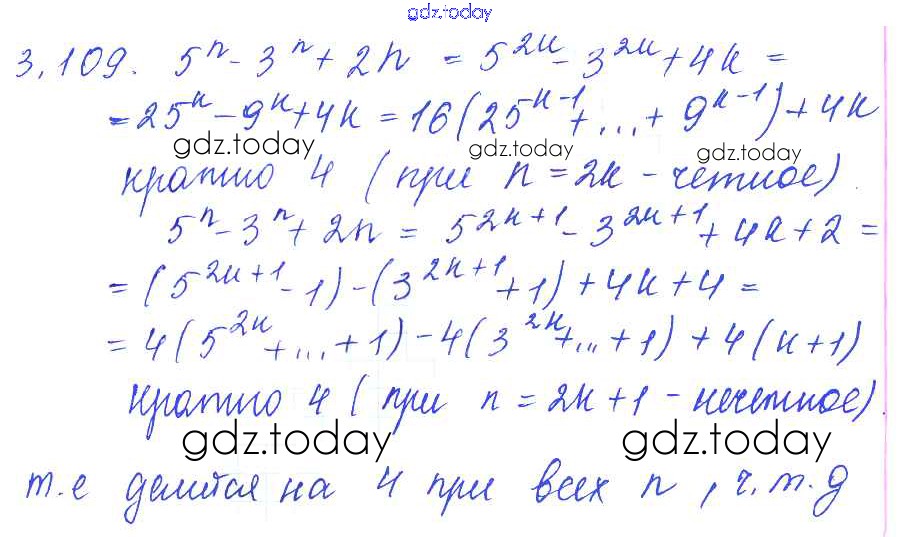 gdz.today
3.109. 5ⁿ - 3ⁿ + 2n = 5²ᵏ - 3²ᵏ + 4k =
= 25ᵏ - 9ᵏ + 4k = 16(25ᵏ⁻¹ + ... + 9ᵏ⁻¹) + 4k
gdz.today gdz.today gdz.today
кратно 4 (при n = 2k - четное).
5ⁿ - 3ⁿ + 2n = 5²ᵏ⁺¹ - 3²ᵏ⁺¹ + 4k + 2 =
= (5²ᵏ⁺¹ - 1) - (3²ᵏ⁺¹ + 1) + 4k + 4 =
= 4(5²ᵏ + ... + 1) - 4(3²ᵏ + ... + 1) + 4(k + 1)
кратно 4 (при n = 2k + 1 - нечетное)
gdz.today gdz.today
т.е делится на 4 при всех n, ч.т.д